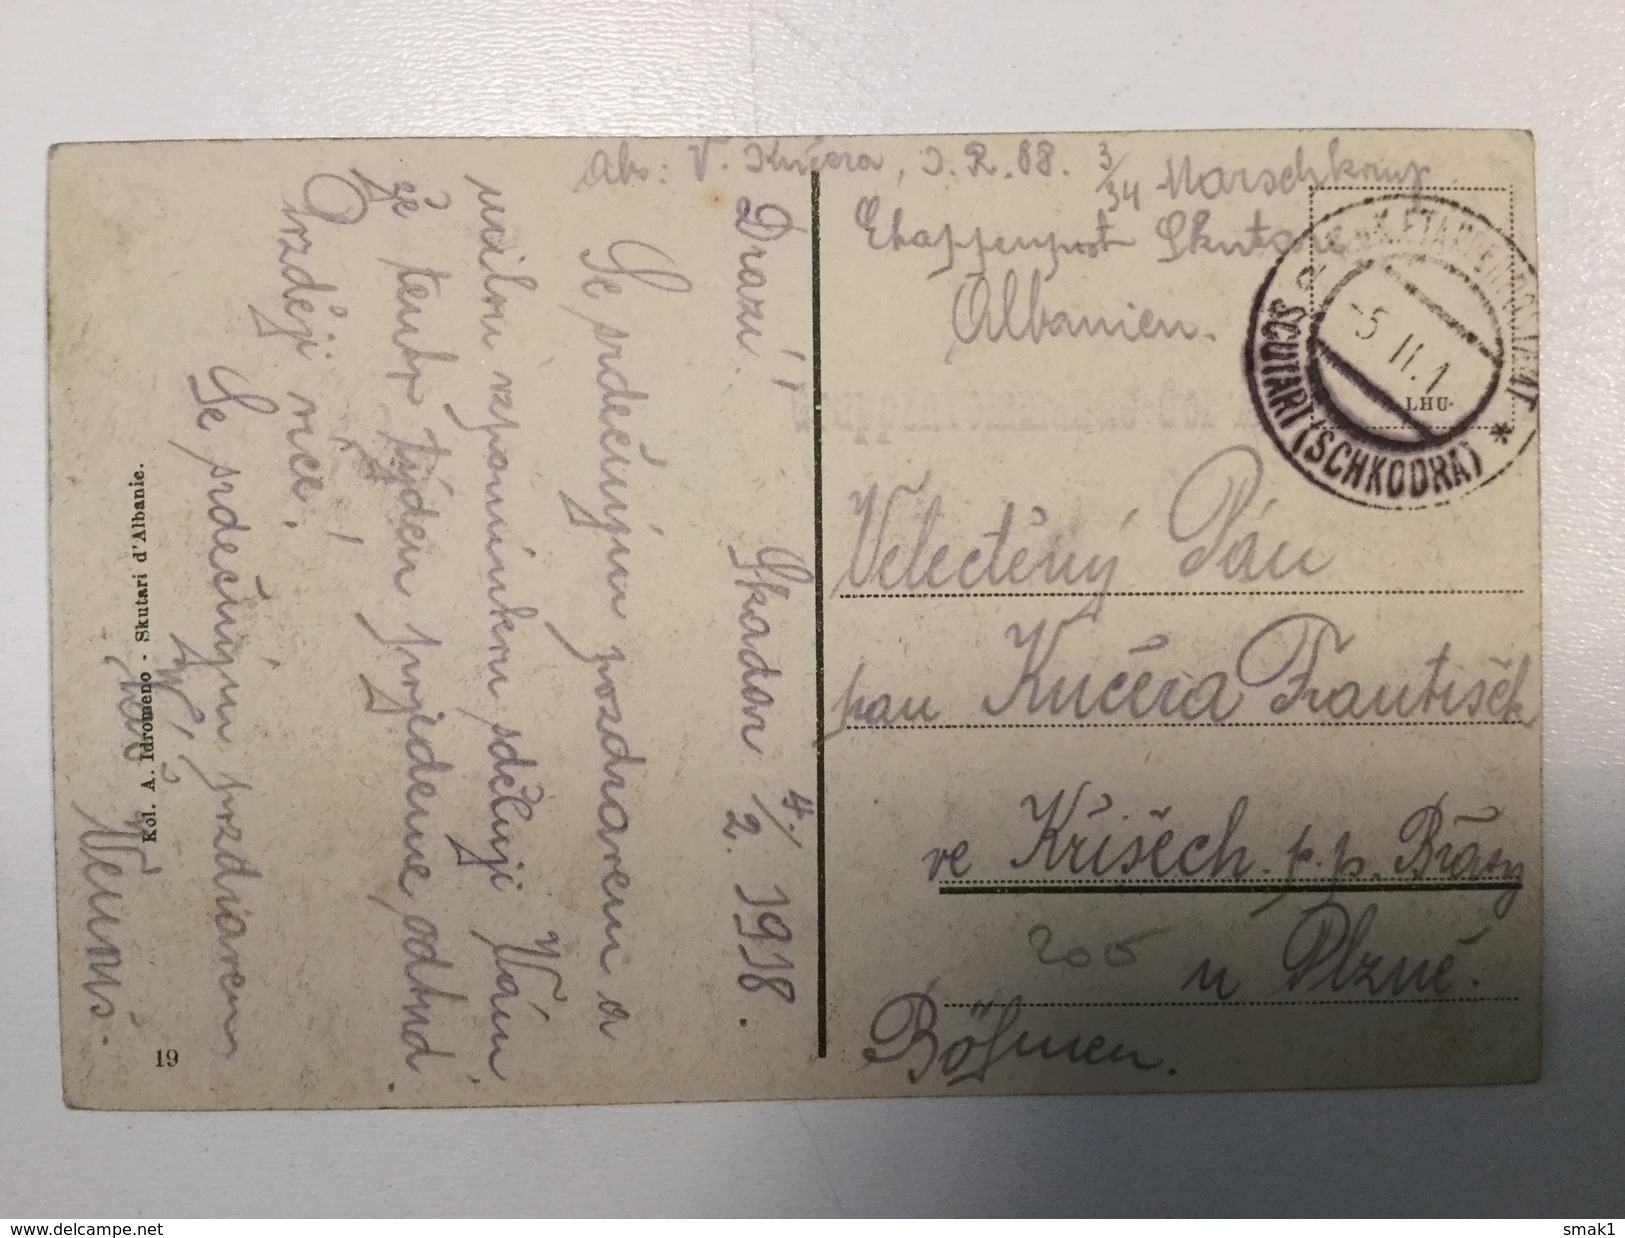 Abs: V. Kučera, I. R. 88. 3/34 Marschkomp.
Etappenpost Skutari
Albanien.
K.u.K. ETAPPENPOSTAMT
-5. II. 1
SCUTARI (SCHKODRA) *
LHU
Velectěný Pán
pan Kučera František
ve Křišech p. p. Břasy
u Plzně.
Böhmen.
200
Drazí!
Skadar 4./2. 1918.
Se srdečným pozdravem a
milou vzpomínkou sděluji Vám
že tento týden pojedeme odtud.
Později více!
Se srdečným pozdravem
Váš
Kol. A. Idromeno - Skutari d'Albanie.
19
delcampe.net
smak1